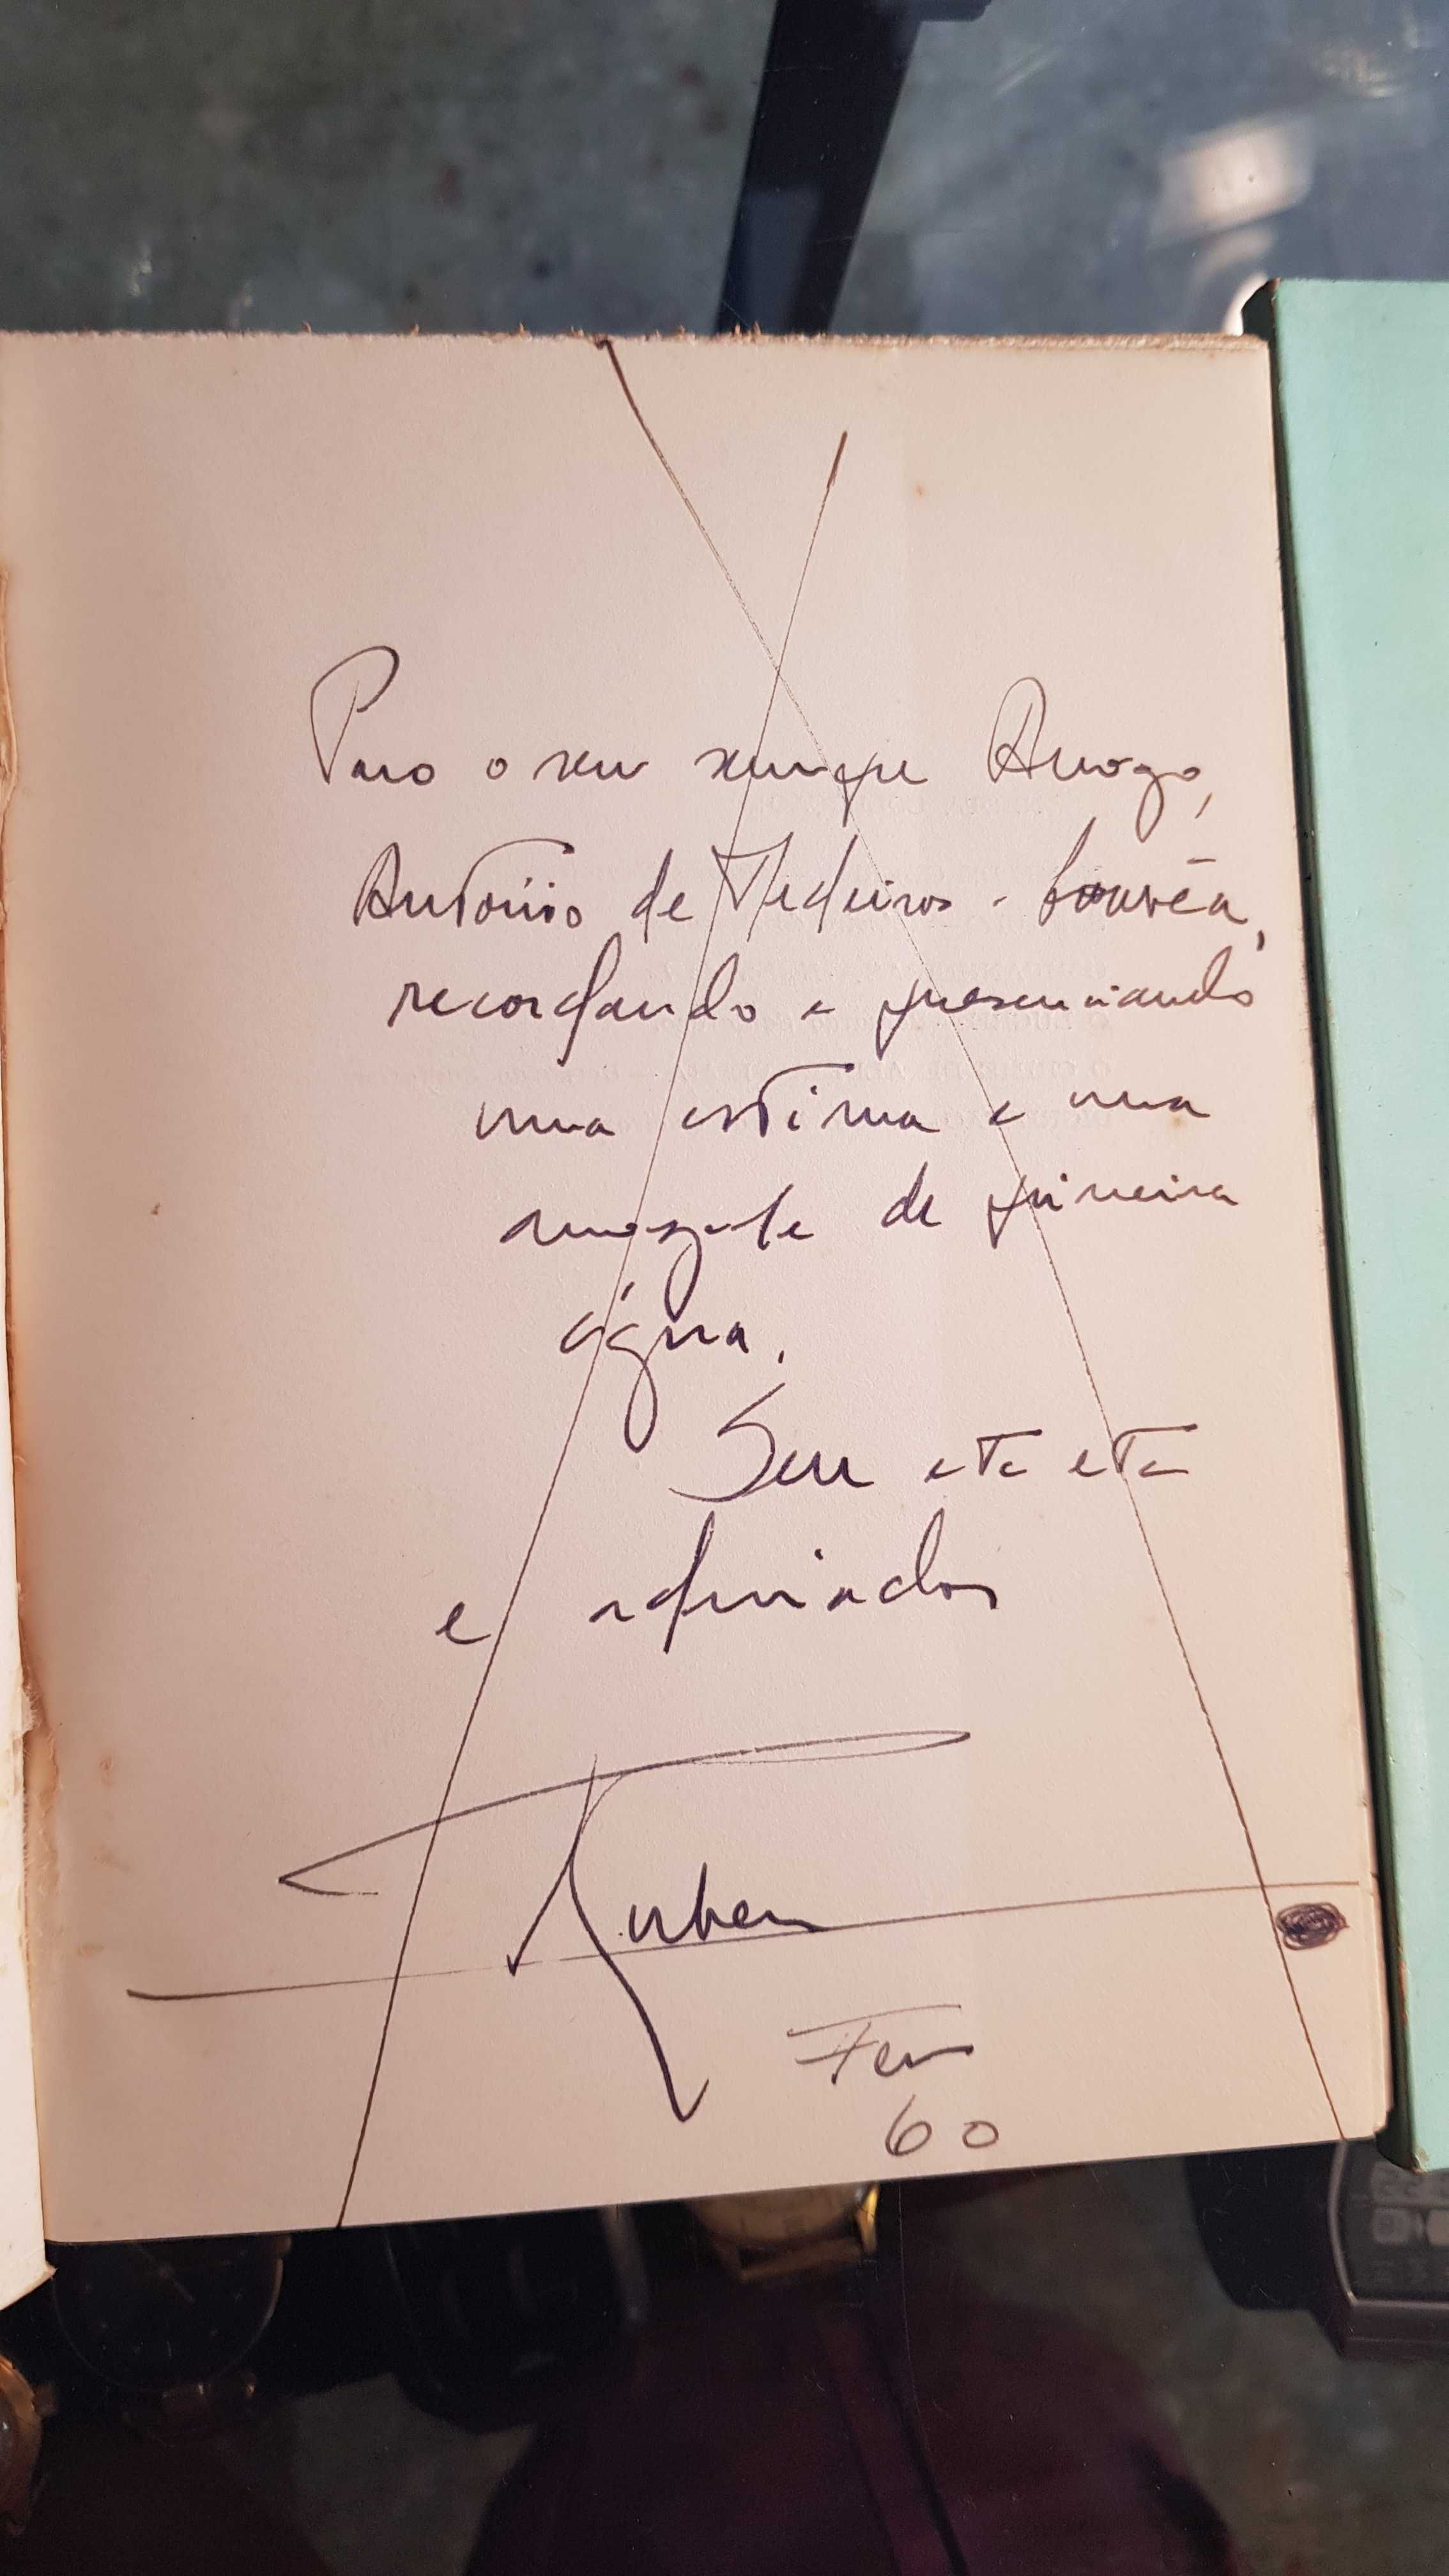 Para o seu sempre Amigo,
António de Medeiros - Gouvêa,
recordando e presenciando
uma estima e uma
amizade de primeira
água.
Seu etc etc
e admirador
Ruben
Fev
60